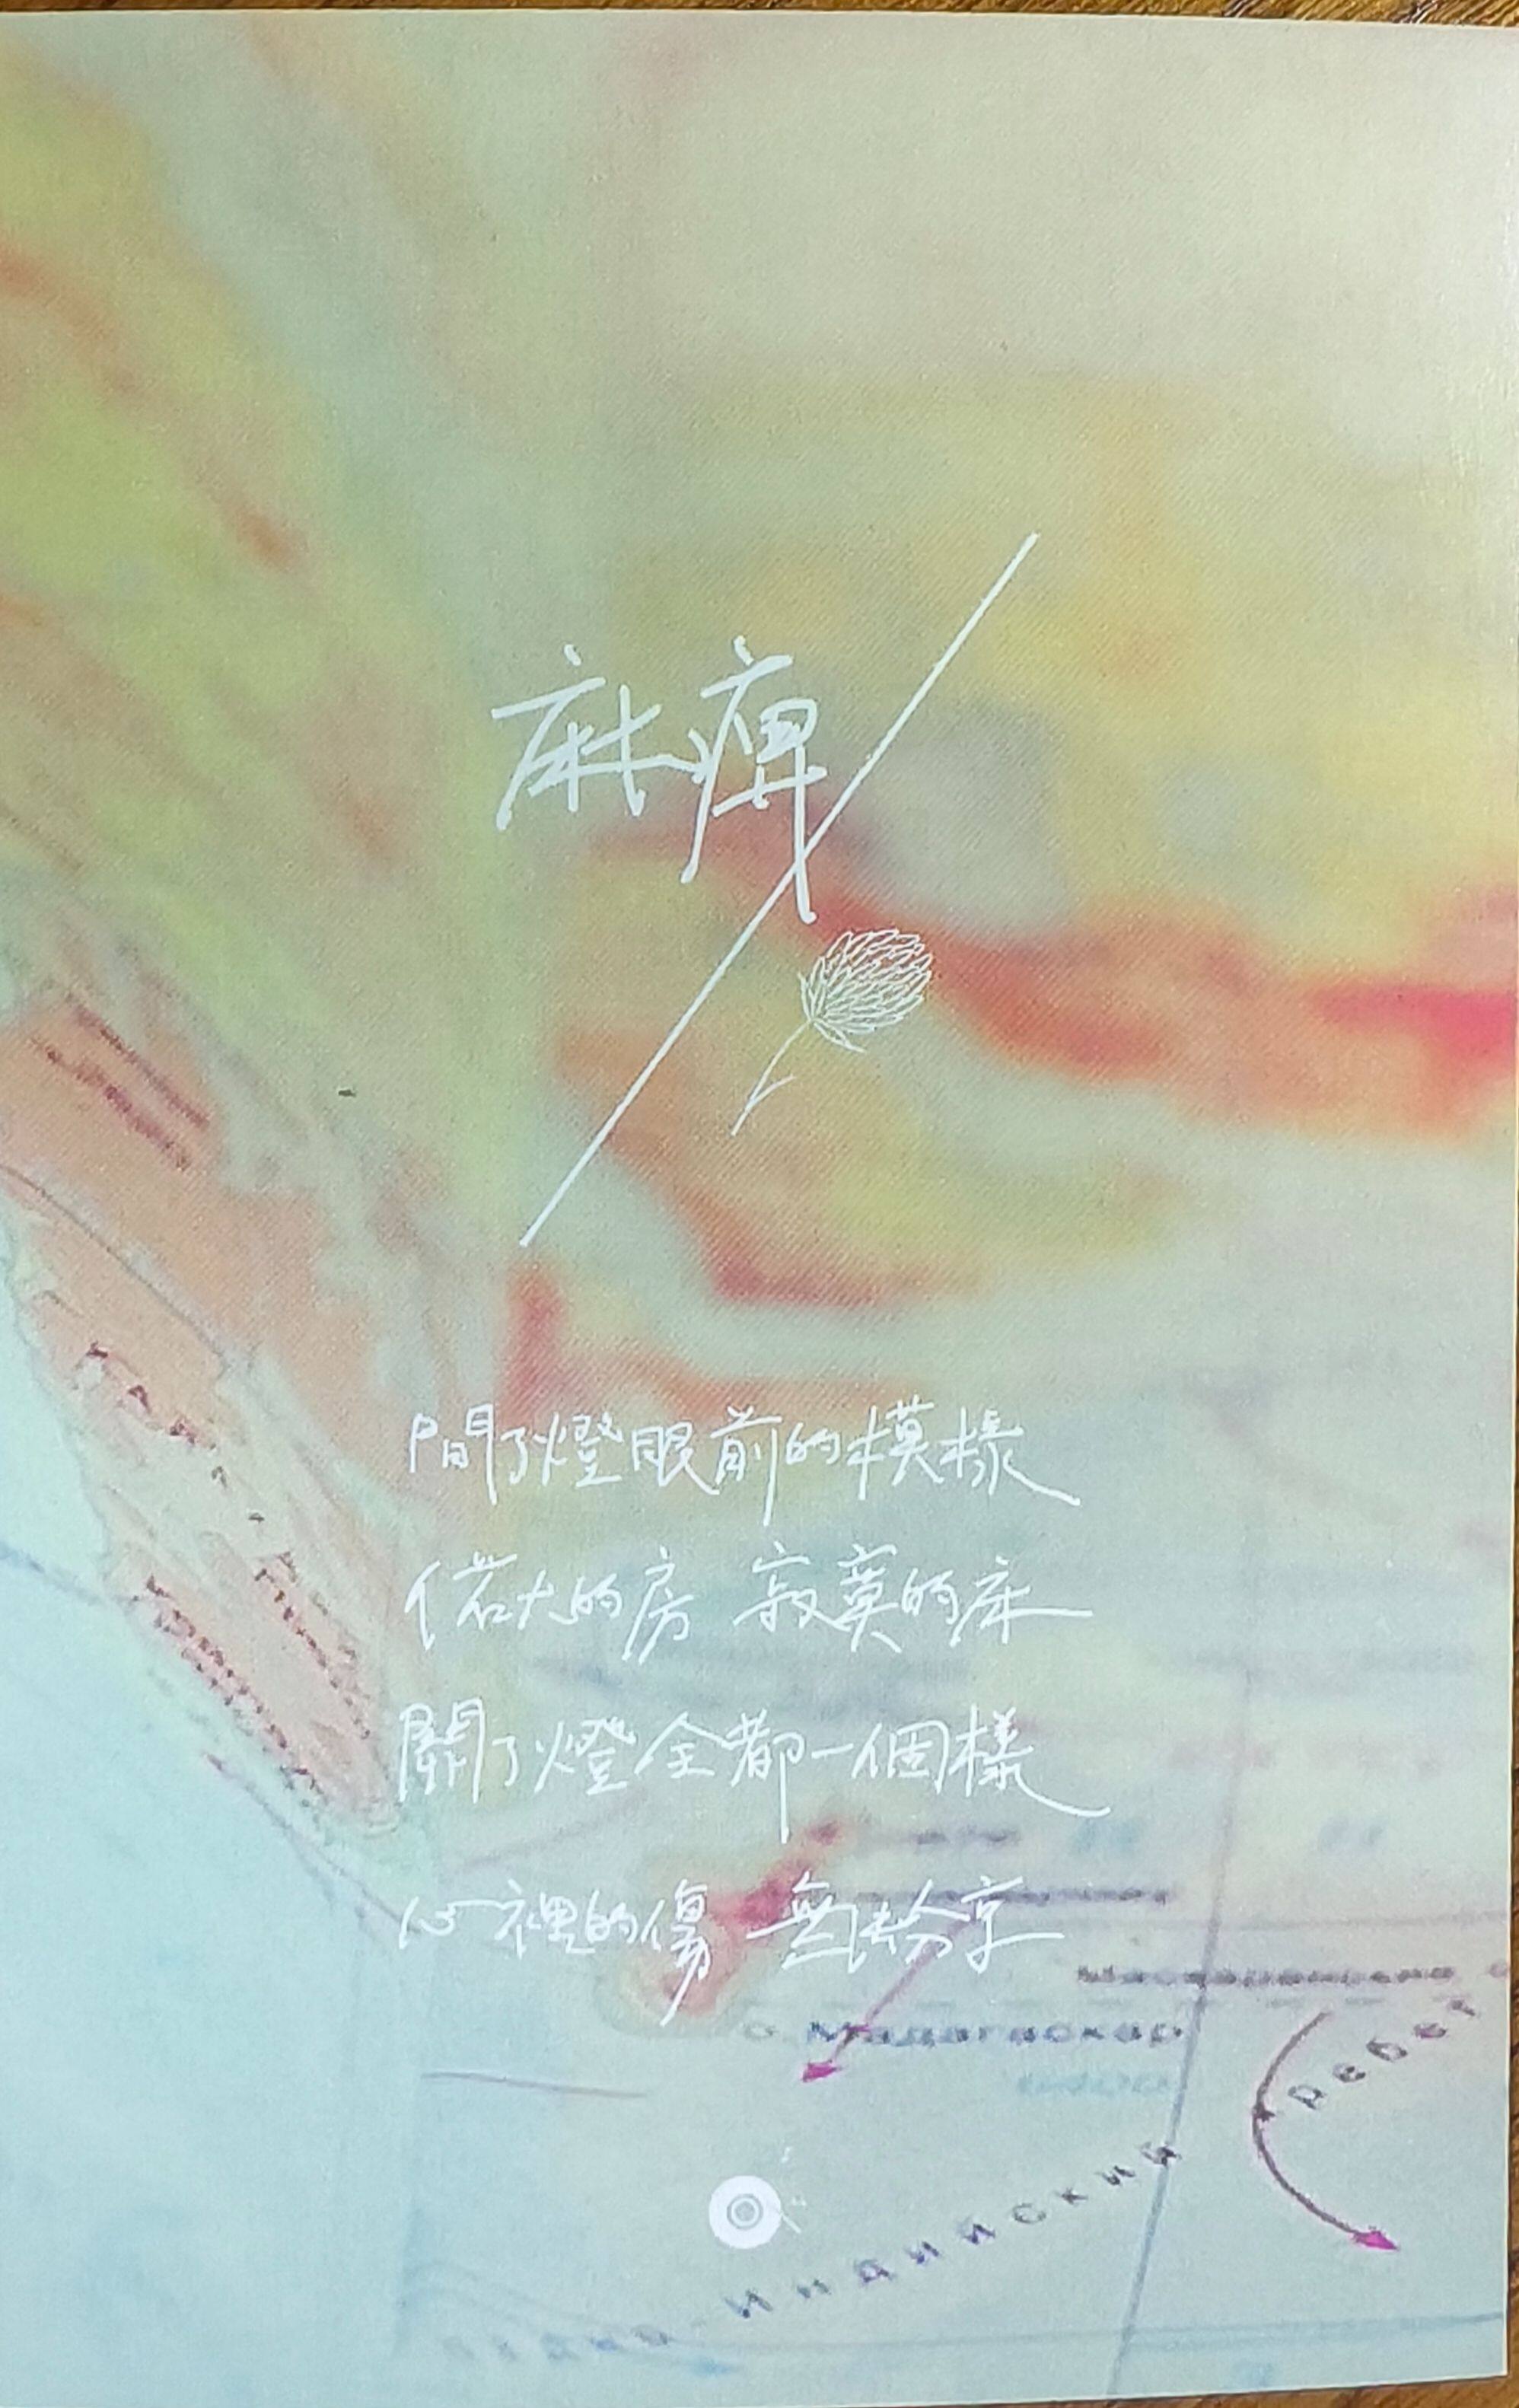 麻痺
開了燈眼前的模樣
偌大的房 寂寞的床
關了燈全都一個樣
心裡的傷 無法分享
Маскаренские
о. Мадагаскар
Индийский